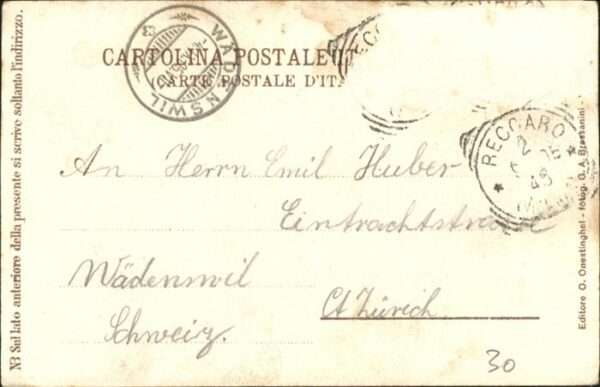 NB Sul lato anteriore della presente si scrive soltanto l'indirizzo.
CARTOLINA POSTALE
(CARTE POSTALE D'IT
WÄDENSWIL
RECOARO
An Herrn Emil Huber
Eintrachtstrasse
Wädenswil
Ct Zürich
Schweiz.
30
Editore O. Onestinghel - fotog. G. A. Bressanini -